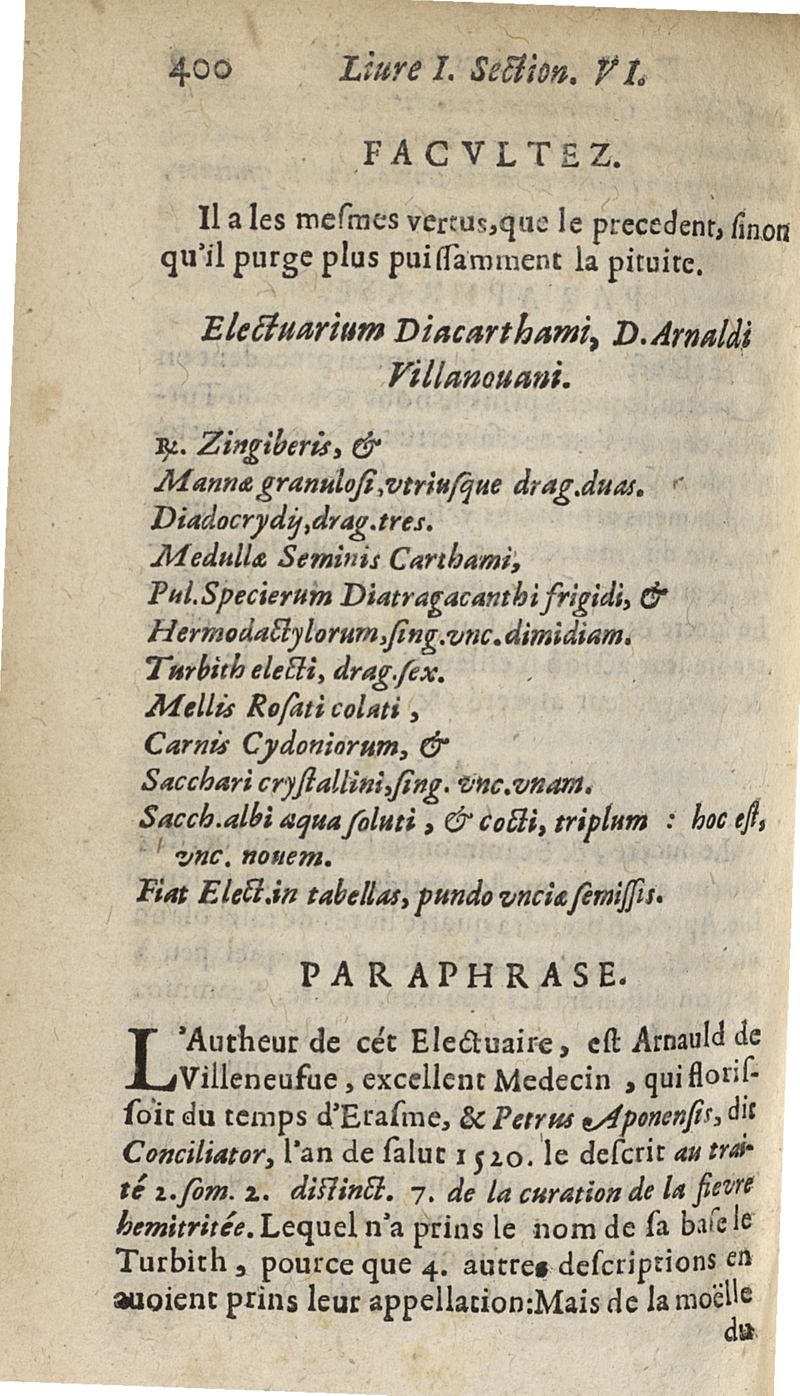 400 Liure I. Section. VI.
FACVLTEZ.
Il a les meſmes vertus, que le precedent, ſinon
qu'il purge plus puiſſamment la pituite.
Electuarium Diacarthami, D. Arnaldi
Villanouani.
℞. Zingiberis, &
Mannæ granuloſi, vtriuſque drag. duas.
Diadocrydij, drag. tres.
Medullæ Seminis Carthami,
Pul. Specierum Diatragacanthi frigidi, &
Hermodactylorum, ſing. vnc. dimidiam.
Turbith electi, drag. ſex.
Mellis Roſati colati,
Carnis Cydoniorum, &
Sacchari cryſtallini, ſing. vnc. vnam.
Sacch. albi aqua ſoluti, & cocti, triplum : hoc eſt,
vnc. nouem.
Fiat Elect. in tabellas, pundo vnciæ ſemiſſis.
PARAPHRASE.
L'Autheur de cét Electuaire, eſt Arnauld de
Villeneufue, excellent Medecin, qui floriſ-
ſoit du temps d'Eraſme, & Petrus Aponenſis, dit
Conciliator, l'an de ſalut 1520. le deſcrit au trai-
té 2. ſom. 2. diſtinct. 7. de la curation de la fievre
hemitritée. Lequel n'a prins le nom de ſa baſe le
Turbith, pource que 4. autres deſcriptions en
auoient prins leur appellation: Mais de la moëlle
du